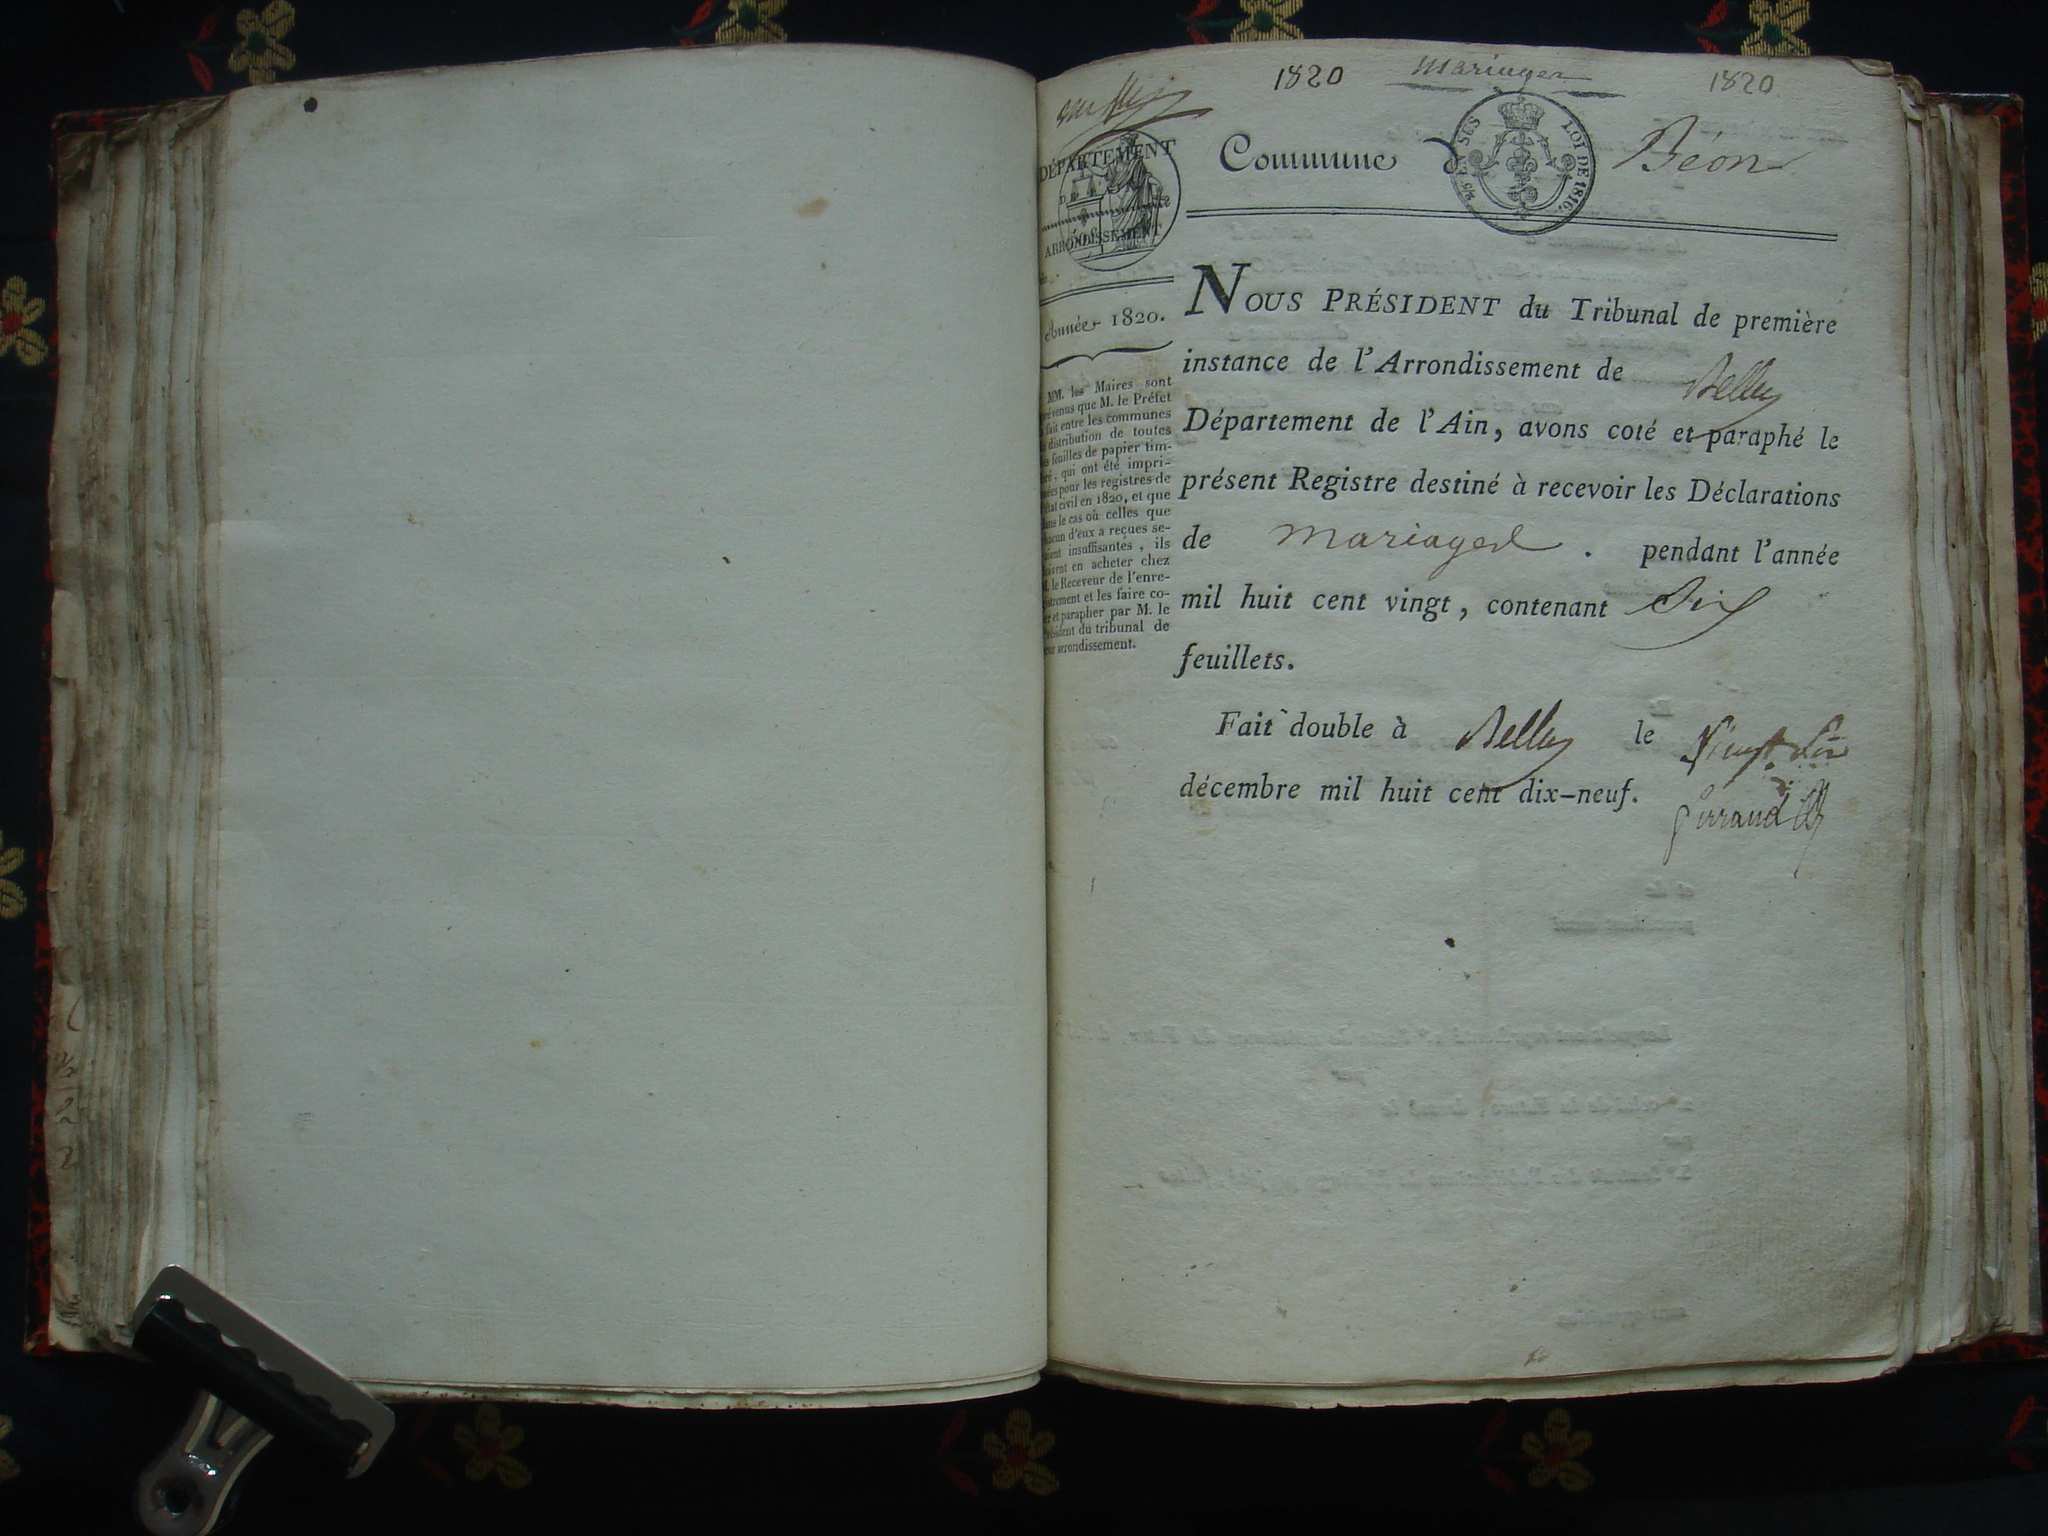 1820 mariages 1820
DÉPARTEMENT
DE
ARRONDISSEMENT
Commune d
EN SES
LOI DE 1816.
Béon
Année 1820.
MM. les Maires sont
prévenus que M. le Préfet
a fait entre les communes
la distribution de toutes
les feuilles de papier tim-
bré, qui ont été impri-
mées pour les registres de
l'état civil en 1820, et que
dans le cas où celles que
chacun d'eux a reçues se-
raient insuffisantes, ils
en acheter chez
M. le Receveur de l'enre-
gistrement et les faire co-
ter et parapher par M. le
Président du tribunal de
leur arrondissement.
NOUS PRÉSIDENT du Tribunal de première
instance de l'Arrondissement de Belley
Département de l'Ain, avons coté et paraphé le
présent Registre destiné à recevoir les Déclarations
de mariages . pendant l'année
mil huit cent vingt, contenant Six
feuillets.
Fait double à Belley le Vingt Six
décembre mil huit cent dix-neuf.